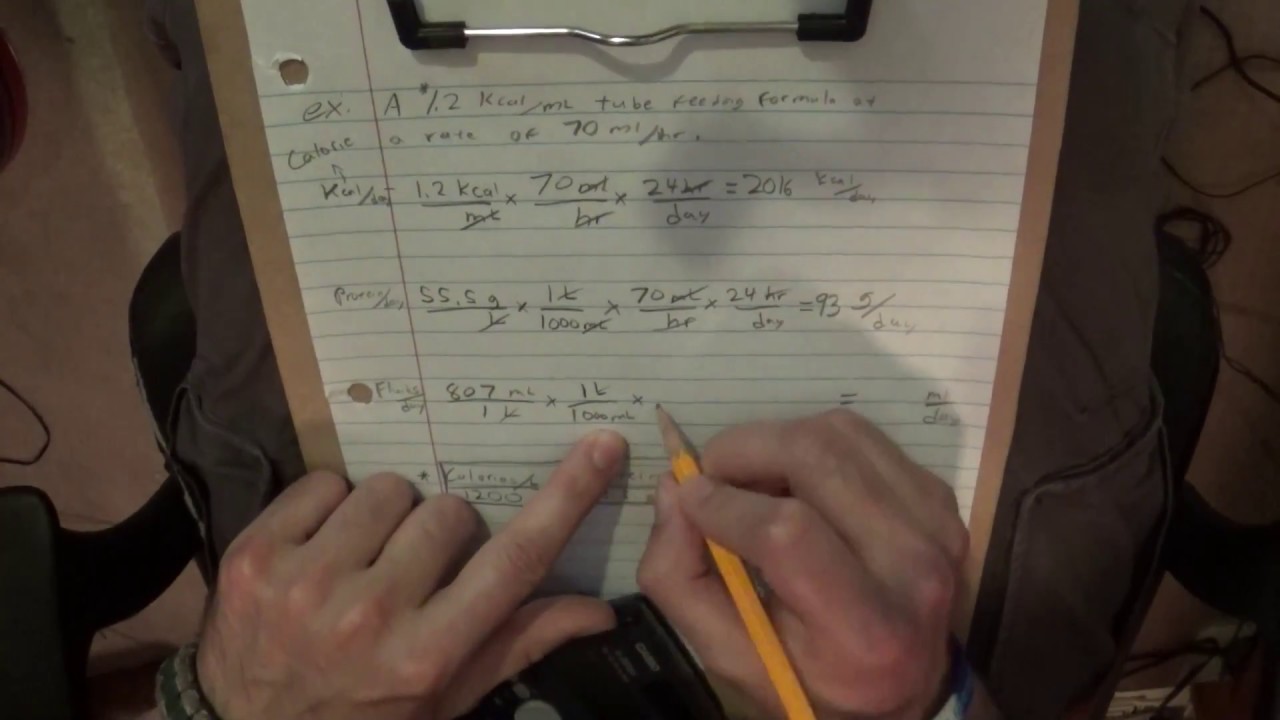 ex. A *1.2 Kcal/mL tube feeding formula at
a rate of 70 ml/hr.
Calorie
Kcal/day = 1.2 Kcal/mL × 70 mL/hr × 24 hr/day = 2016 Kcal/day
Protein/day 55.5 g/L × 1L/1000mL × 70mL/hr × 24 hr/day = 93 g/day
Fluids/day 807 mL/1 L × 1L/1000mL × = ml/day
* Calories/L
1200
CASIO